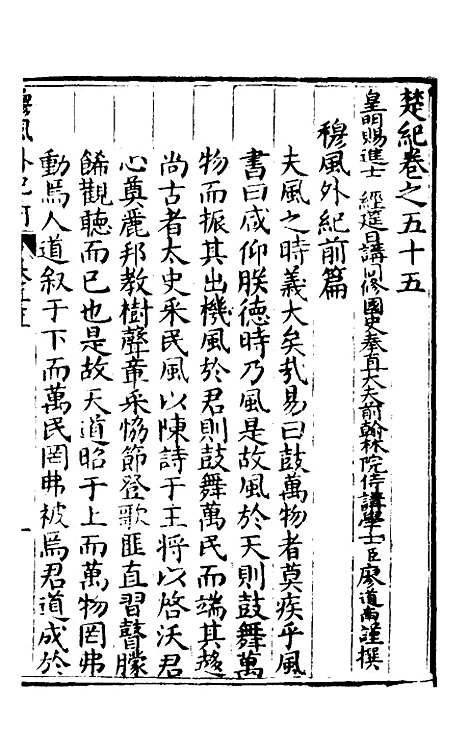 楚紀卷之五十五
皇明賜進士 經筵日講官修國史奉直大夫前翰林院侍講學士臣廖道南謹撰
穆風外紀前篇
夫風之時義大矣㢤易曰鼓萬物者莫疾乎風
書曰咸仰朕德時乃風是故風於天則鼓舞萬
物而振其出機風於君則鼓舞萬民而端其趍
尚古者太史采民風以陳詩于王將以啓沃君
心奠麗邦教樹聲章采恊節登歌匪直習瞽矇
餙觀聽而已也是故天道昭于上而萬物罔弗
動焉人道叙于下而萬民罔弗被焉君道成於
穆風外紀前